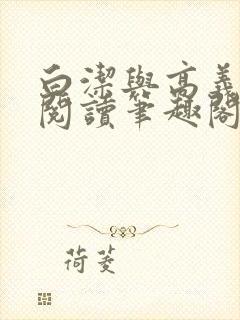 白潔與高義
閱讀筆趣閣
荷菱